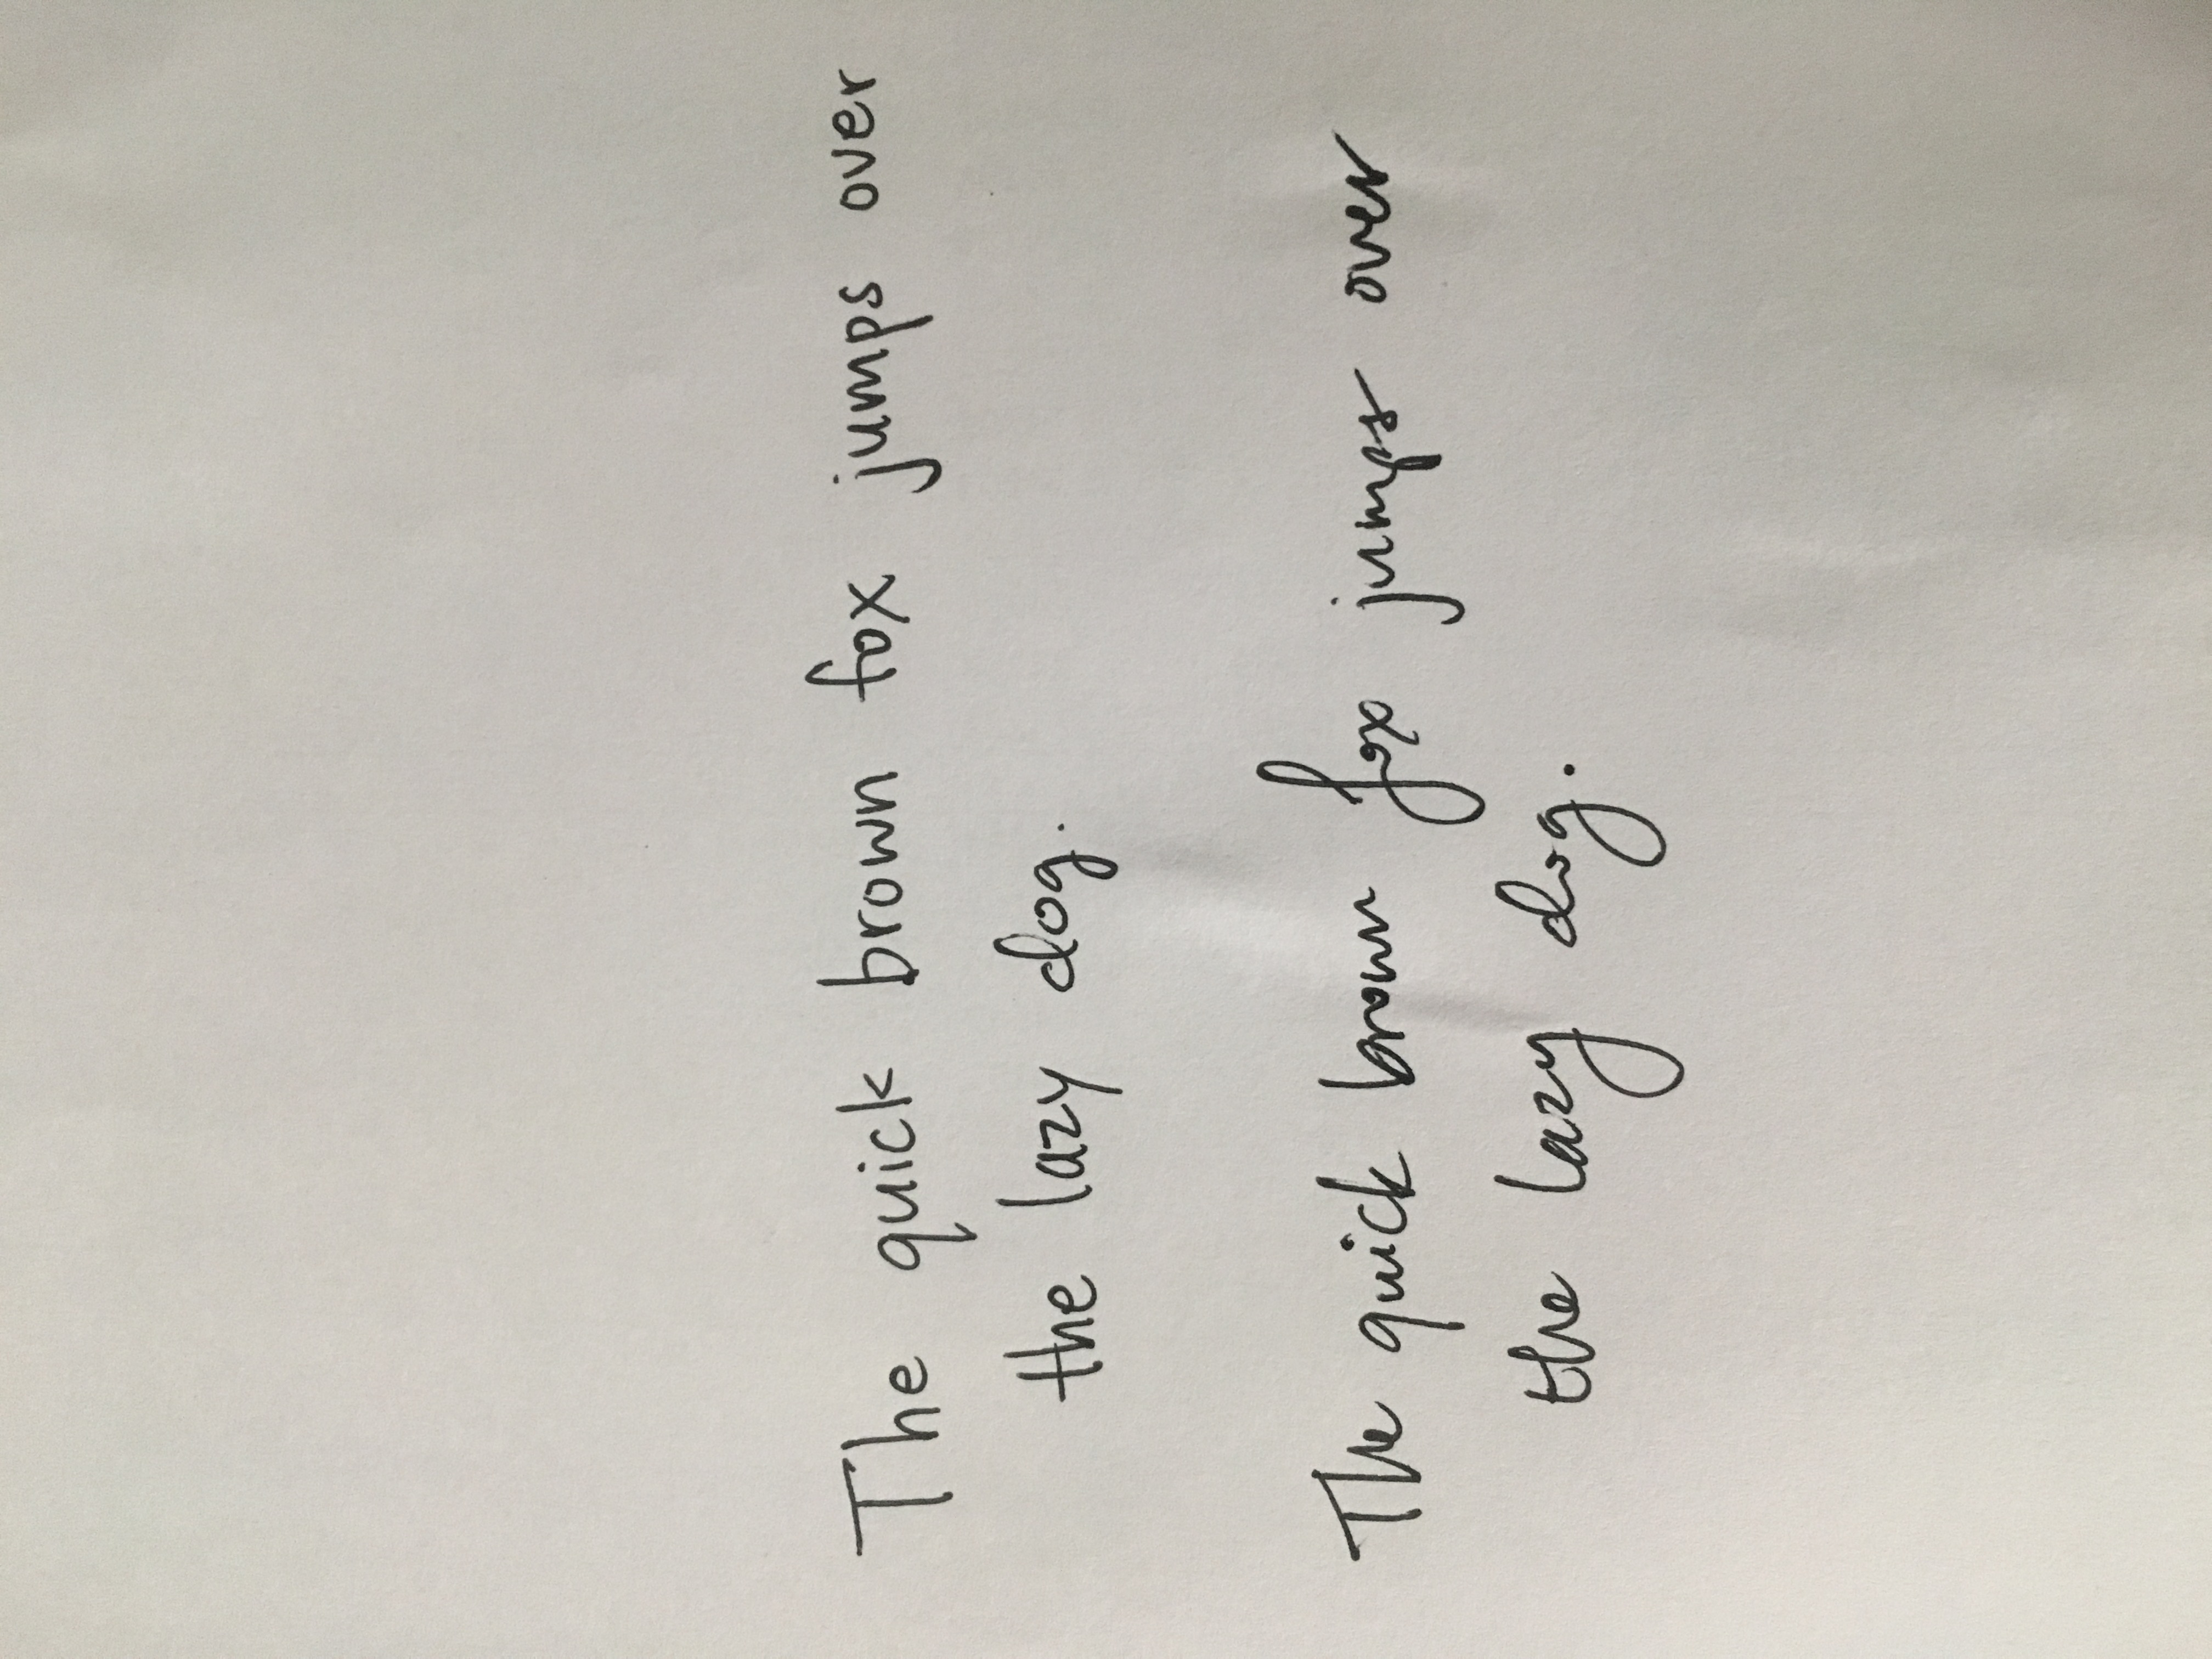 The quick brown fox jumps over
the lazy dog.
The quick brown fox jumps over
the lazy dog.